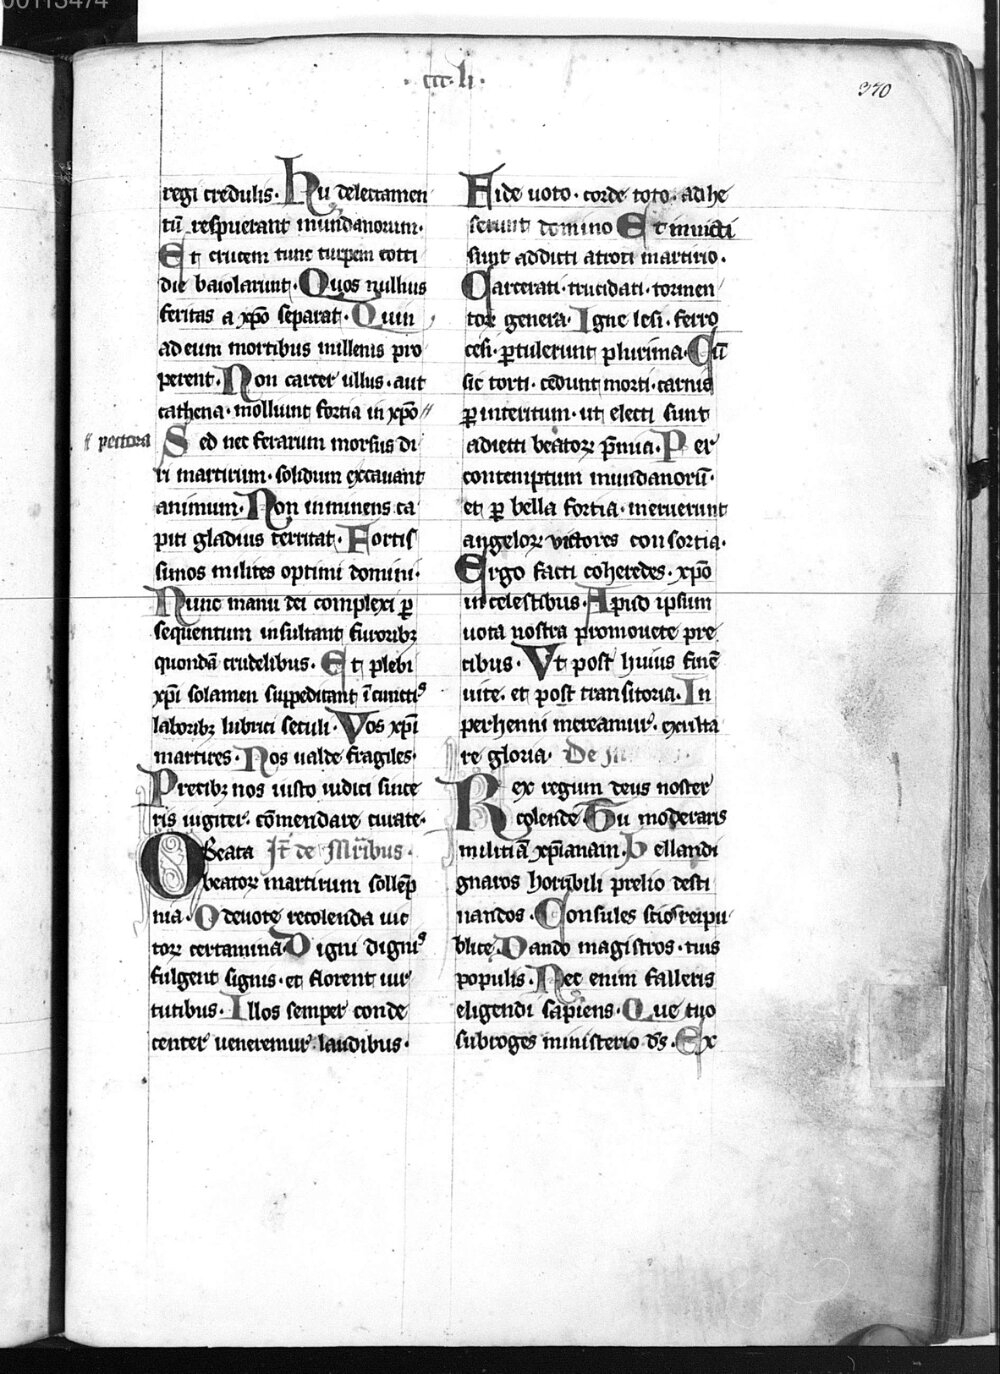 00113474
· ccc · li ·
370
regi credulis · Hii delectamen
tū respuerant mundanorum ·
Et crucem tunc turpem cotti
die baiolarunt · Quos nullius
feritas a xp̄o separat · Quin
ad eum mortibus millenis pro
perent · Non carcer ullus · aut
cathena · molliunt fortia in xp̄o //
// pectora
Sed nec ferarum morsus di
ri martirum · solidum excauant
animum · Non inminens ca
piti gladius territat · Fortis
simos milites optimi domini ·
Nunc manu dei complexi ꝑ
sequentum insultant furoribꝫ
quondā crudelibus · Et plebi
xp̄i solamen suppeditant ī cunctis
laboribꝫ lubrici seculi · Vos xp̄i
martires · Nos ualde fragiles ·
Precibꝫ nos iusto iudici since
ris iugiter · cōmendare curate ·
O Beata It̄ de Mr̄ibus ·
beatoꝝ martirum sollēp
nia · O deuote recolenda uic
toꝝ certamina Digni dignis
fulgent signis · et florent uir
tutibus · Illos semper conde
center ueneremur laudibus ·
Fide uoto · corde toto · adhe
serunt domino Et inuicti
sunt addicti atroci martirio ·
Carcerati · trucidati · tormen
toꝝ genera · Igne lesi · ferro
cesi · ꝑtulerunt plurima · Cū
sic torti · cedunt morti · carnis
ꝑ interitum · ut electi sunt
adiecti beatoꝝ p̄mia · Per
contemptum mundanorū ·
et ꝑ bella fortia · meruerunt
angeloꝝ victores consortia ·
Ergo facti coheredes · xp̄o
in celestibus · Apud ipsum
uota nostra promouete pre
cibus · Vt post huius finē
uite · et post transitoria · In
perhenni mereamur · exulta
re gloria · De
Rex regum deus noster
colende · Tu moderaris
militiā xp̄ianam · Bellandi
gnaros horribili prelio desti
nandos · Consules scis reipu
blice · Dando magistros · tuis
populis · Nec enim falleris
eligendi sapiens · Que tuo
subroges ministerio d̄s · Ex